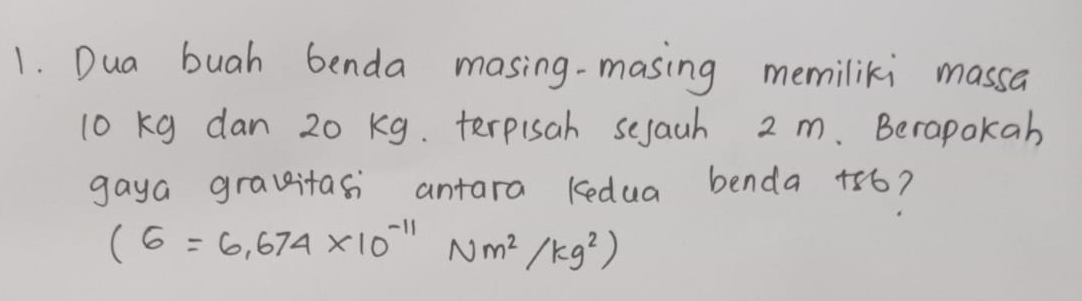 1. Dua buah benda masing-masing memiliki massa
10 kg dan 20 kg. terpisah sejauh 2 m. Berapakah
gaya gravitasi antara kedua benda tsb?
(G = 6,674 × 10⁻¹¹ Nm²/kg²)